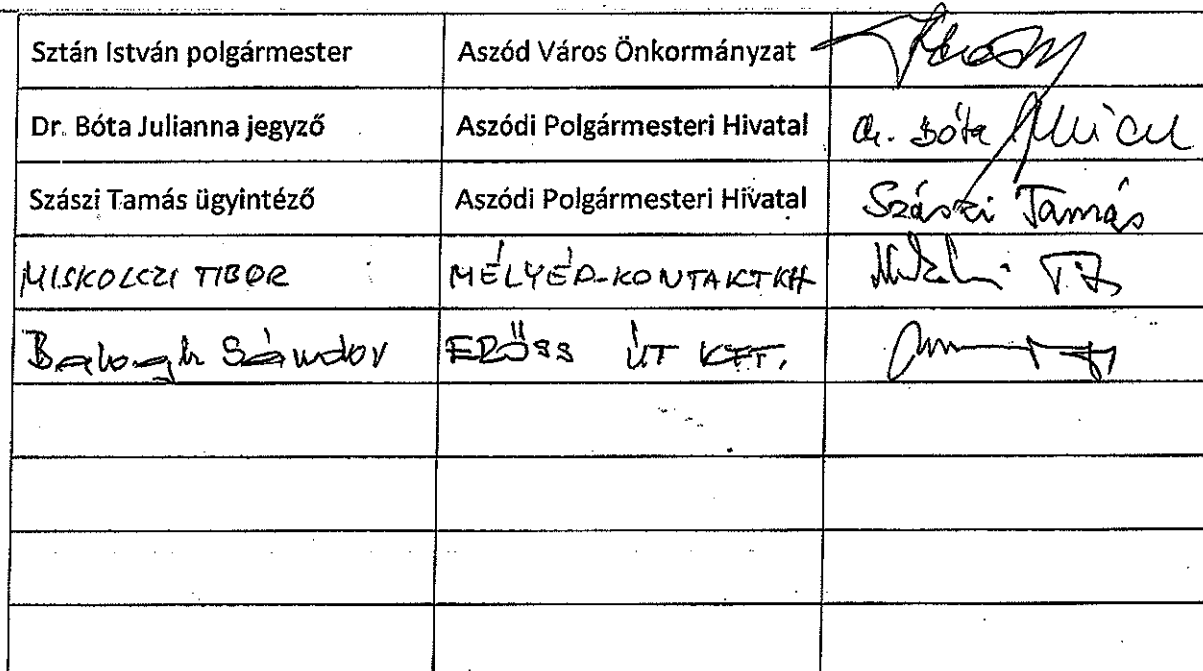 Sztán István polgármester Aszód Város Önkormányzat
Dr. Bóta Julianna jegyző Aszódi Polgármesteri Hivatal dr. Bóta
Szászi Tamás ügyintéző Aszódi Polgármesteri Hivatal Szászi Tamás
MISKOLCZI TIBOR MÉLYÉP-KONTAKT KFT
Balogh Sándor ERŐSS ÚT KFT.